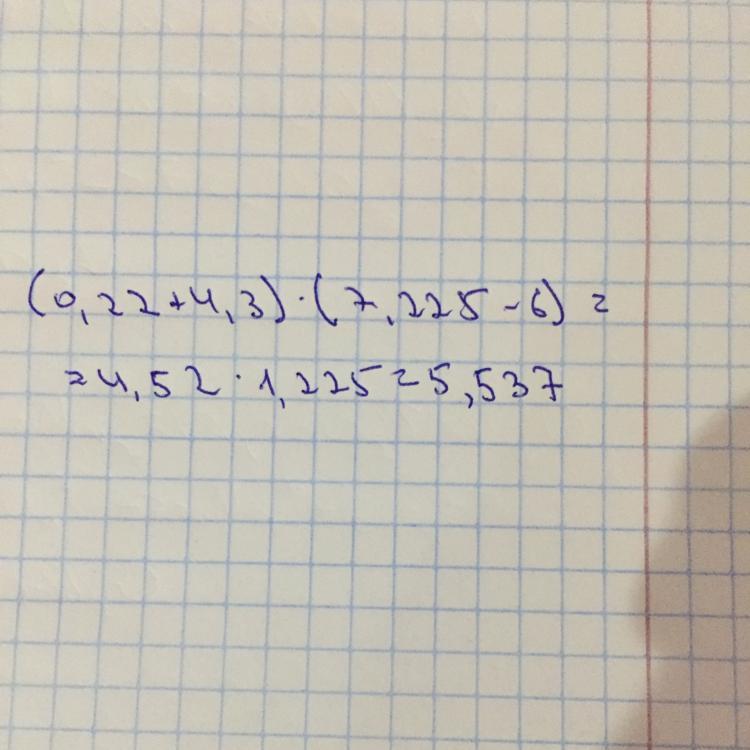 (0,22+4,3)·(7,225-6)=
=4,52·1,225=5,537